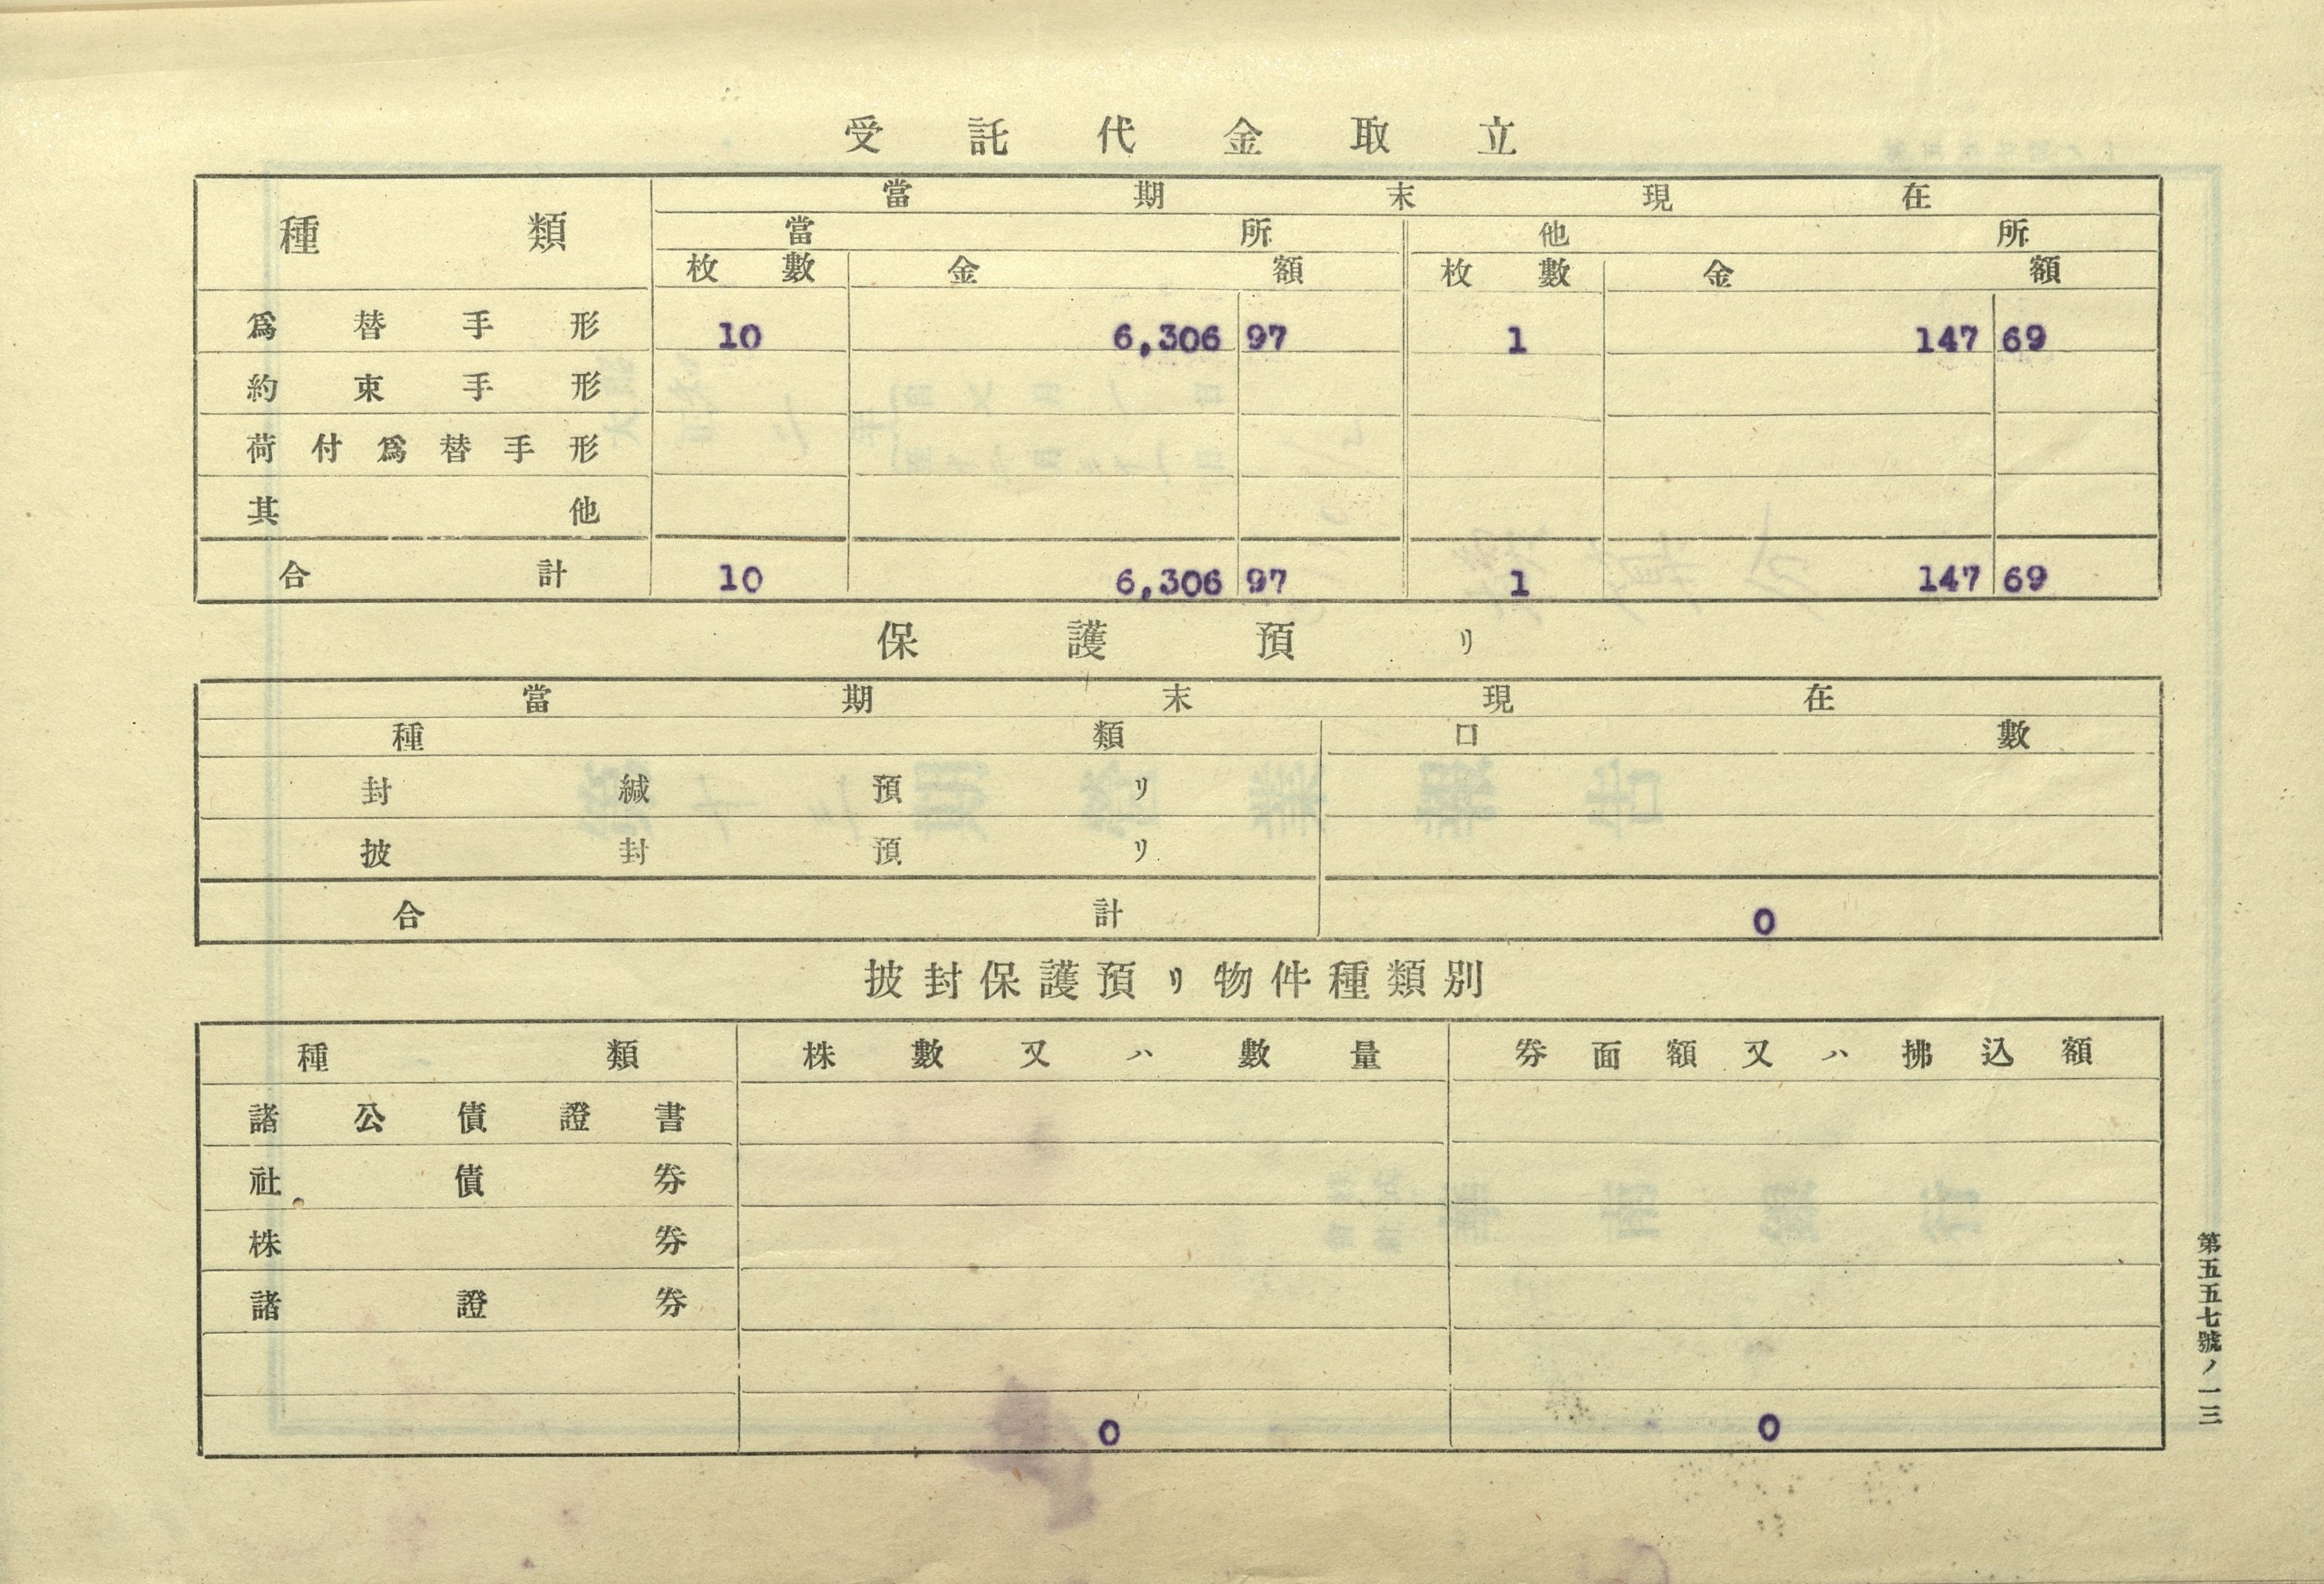 受託代金取立
種類 當期末現在
當所 他所
枚數 金額 枚數 金額
爲替手形 10 6,306 97 1 147 69
約束手形
荷付爲替手形
其他
合計 10 6,306 97 1 147 69
保護預リ
當期末現在
種類 口數
封緘預リ
披封預リ
合計 0
披封保護預リ物件種類別
種類 株數又ハ數量 券面額又ハ拂込額
諸公債證書
社債券
株券
諸證券
0 0
第五五七號ノ一三